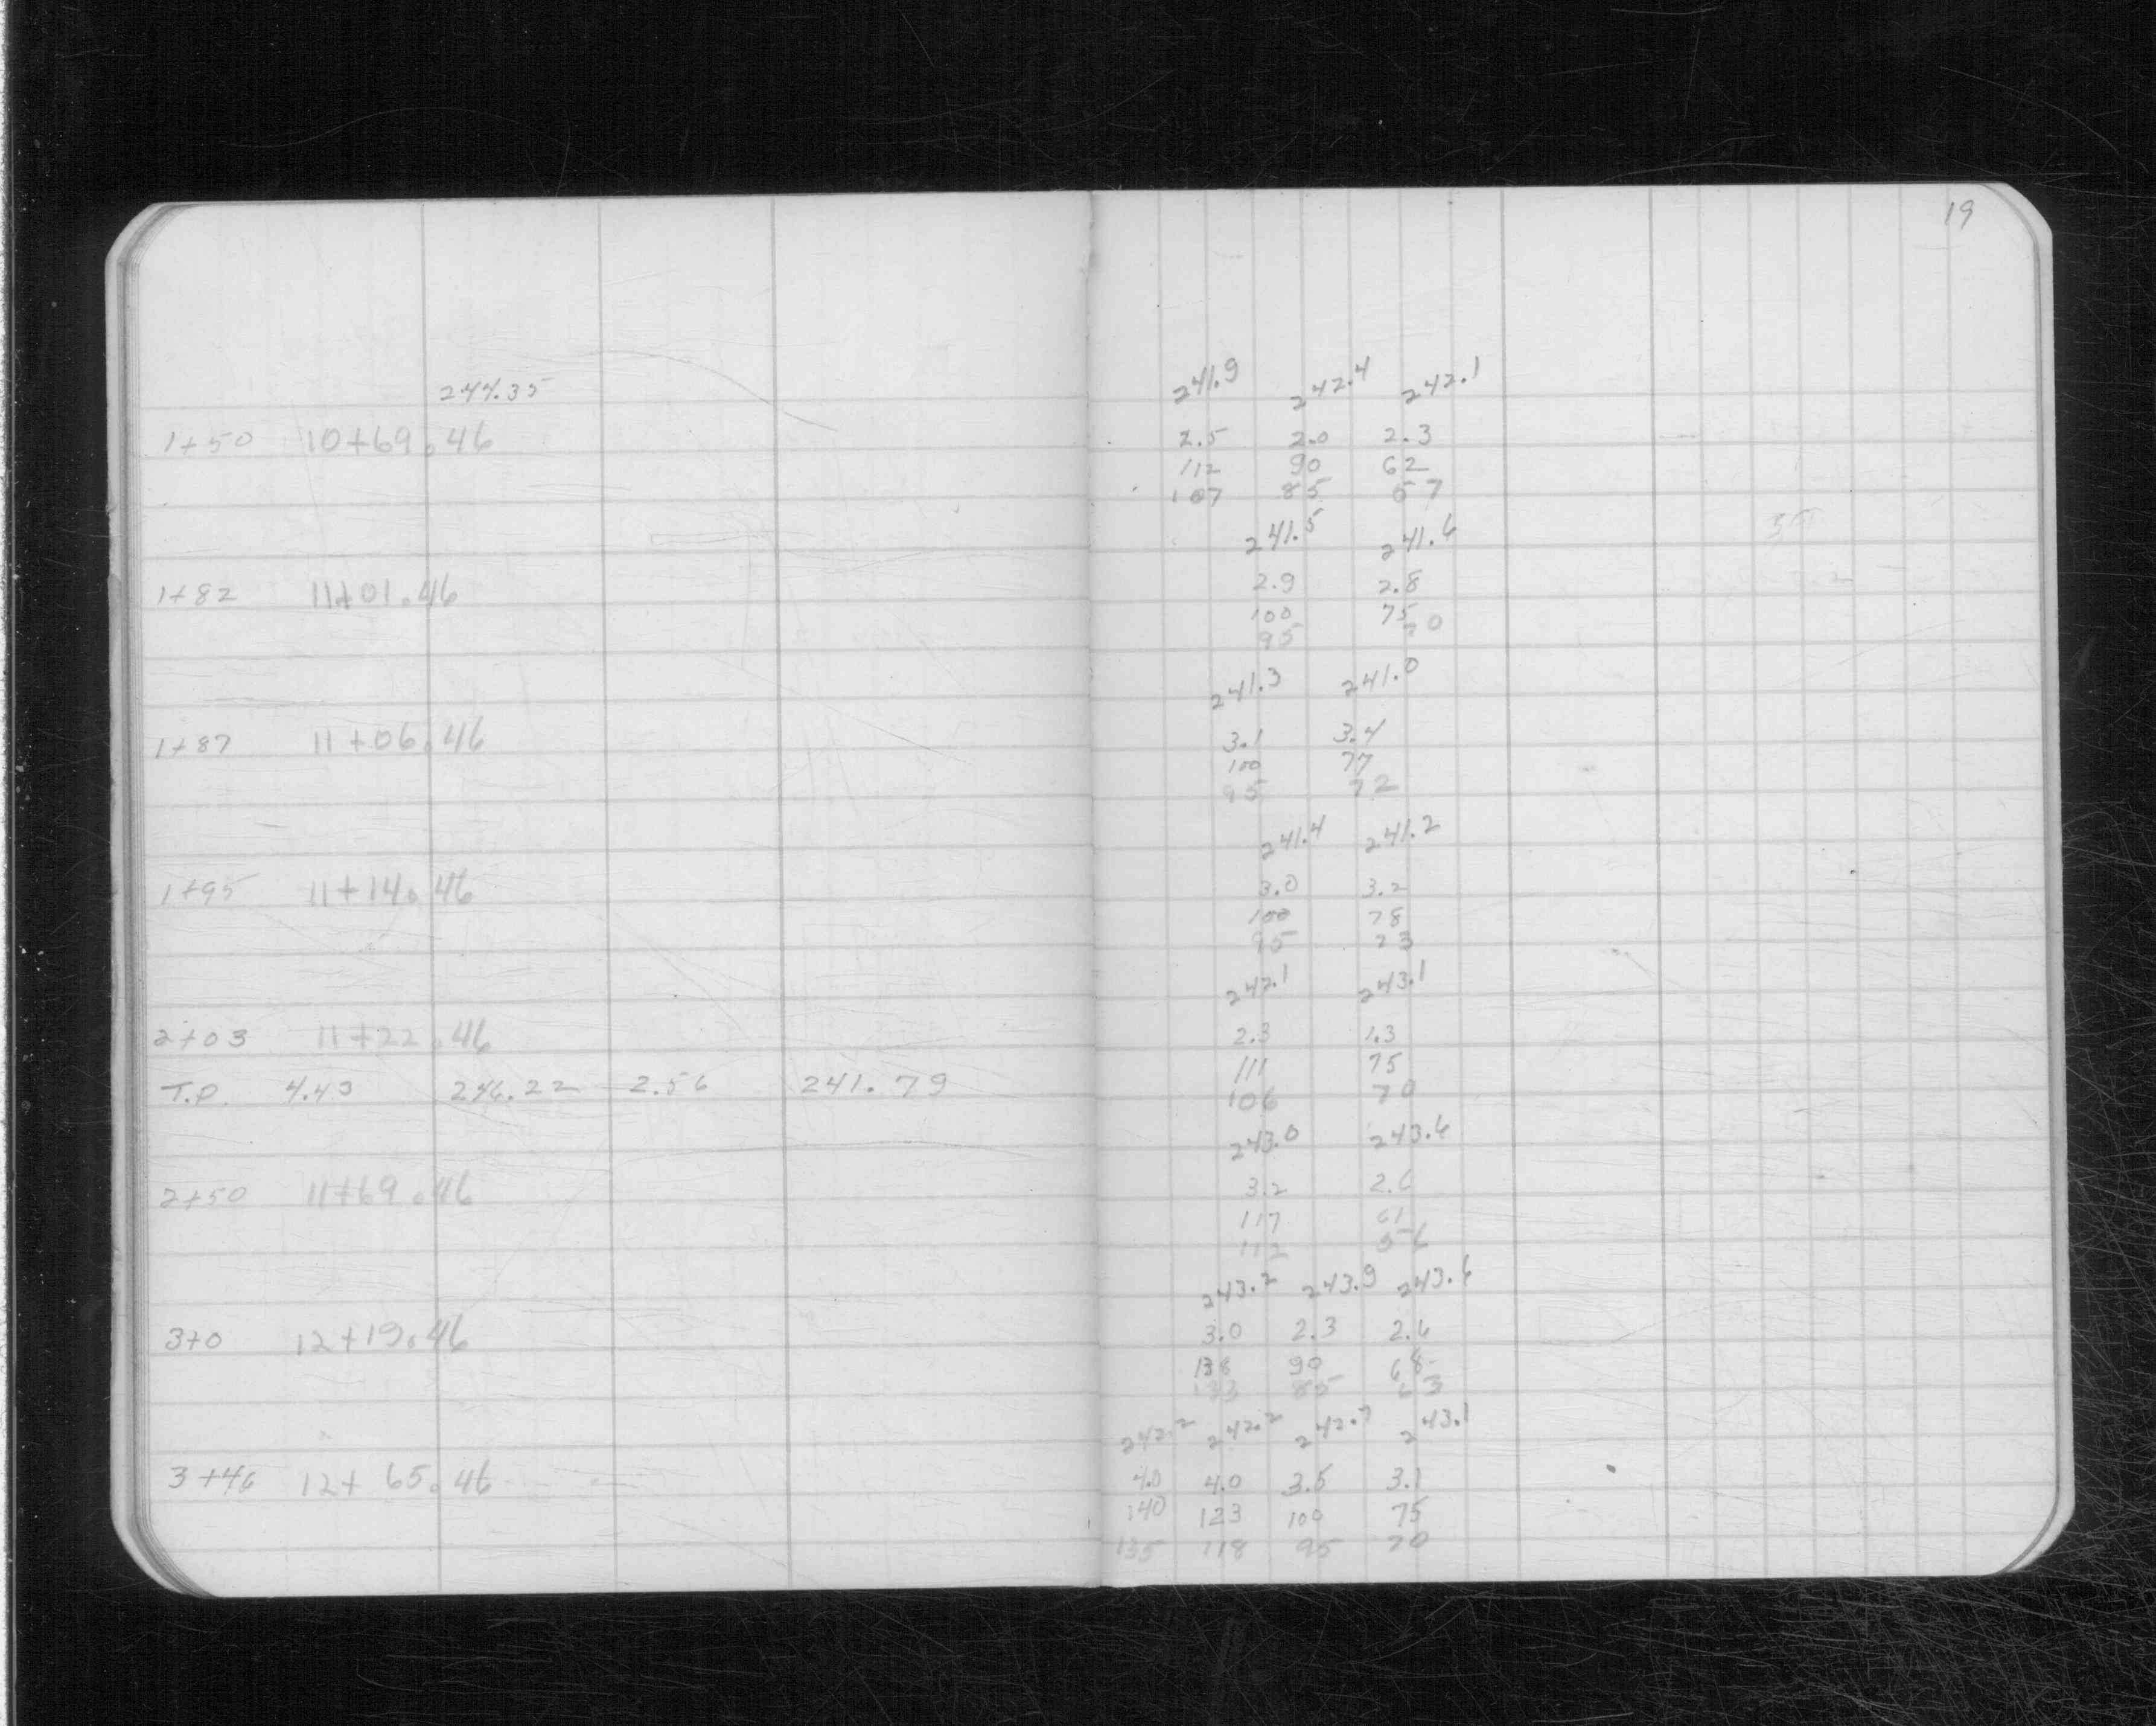 19
244.35 241.9 242.4 242.1
1+50 10+69.46 2.5 2.0 2.3
112 90 62
107 85 57
241.5 241.6
1+82 11+01.46 2.9 2.8
100 75
95 70
241.3 241.0
1+87 11+06.46 3.1 3.4
100 77
95 72
241.4 241.2
1+95 11+14.46 3.0 3.2
100 78
95 73
242.1 243.1
2+03 11+22.46 2.3 1.3
111 75
T.P. 4.43 246.22 2.56 241.79 106 70
243.0 243.6
2+50 11+69.46 3.2 2.6
117 61
112 56
243.2 243.9 243.6
3+0 12+19.46 3.0 2.3 2.6
138 90 68
133 85 63
242.2 242.2 242.7 243.1
3+46 12+65.46 4.0 4.0 3.5 3.1
140 123 100 75
135 118 95 70